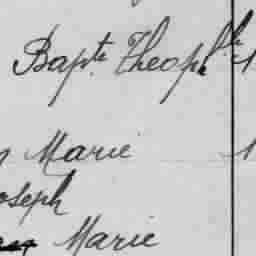 Bapt. Theophle
Marie
oseph
Marie